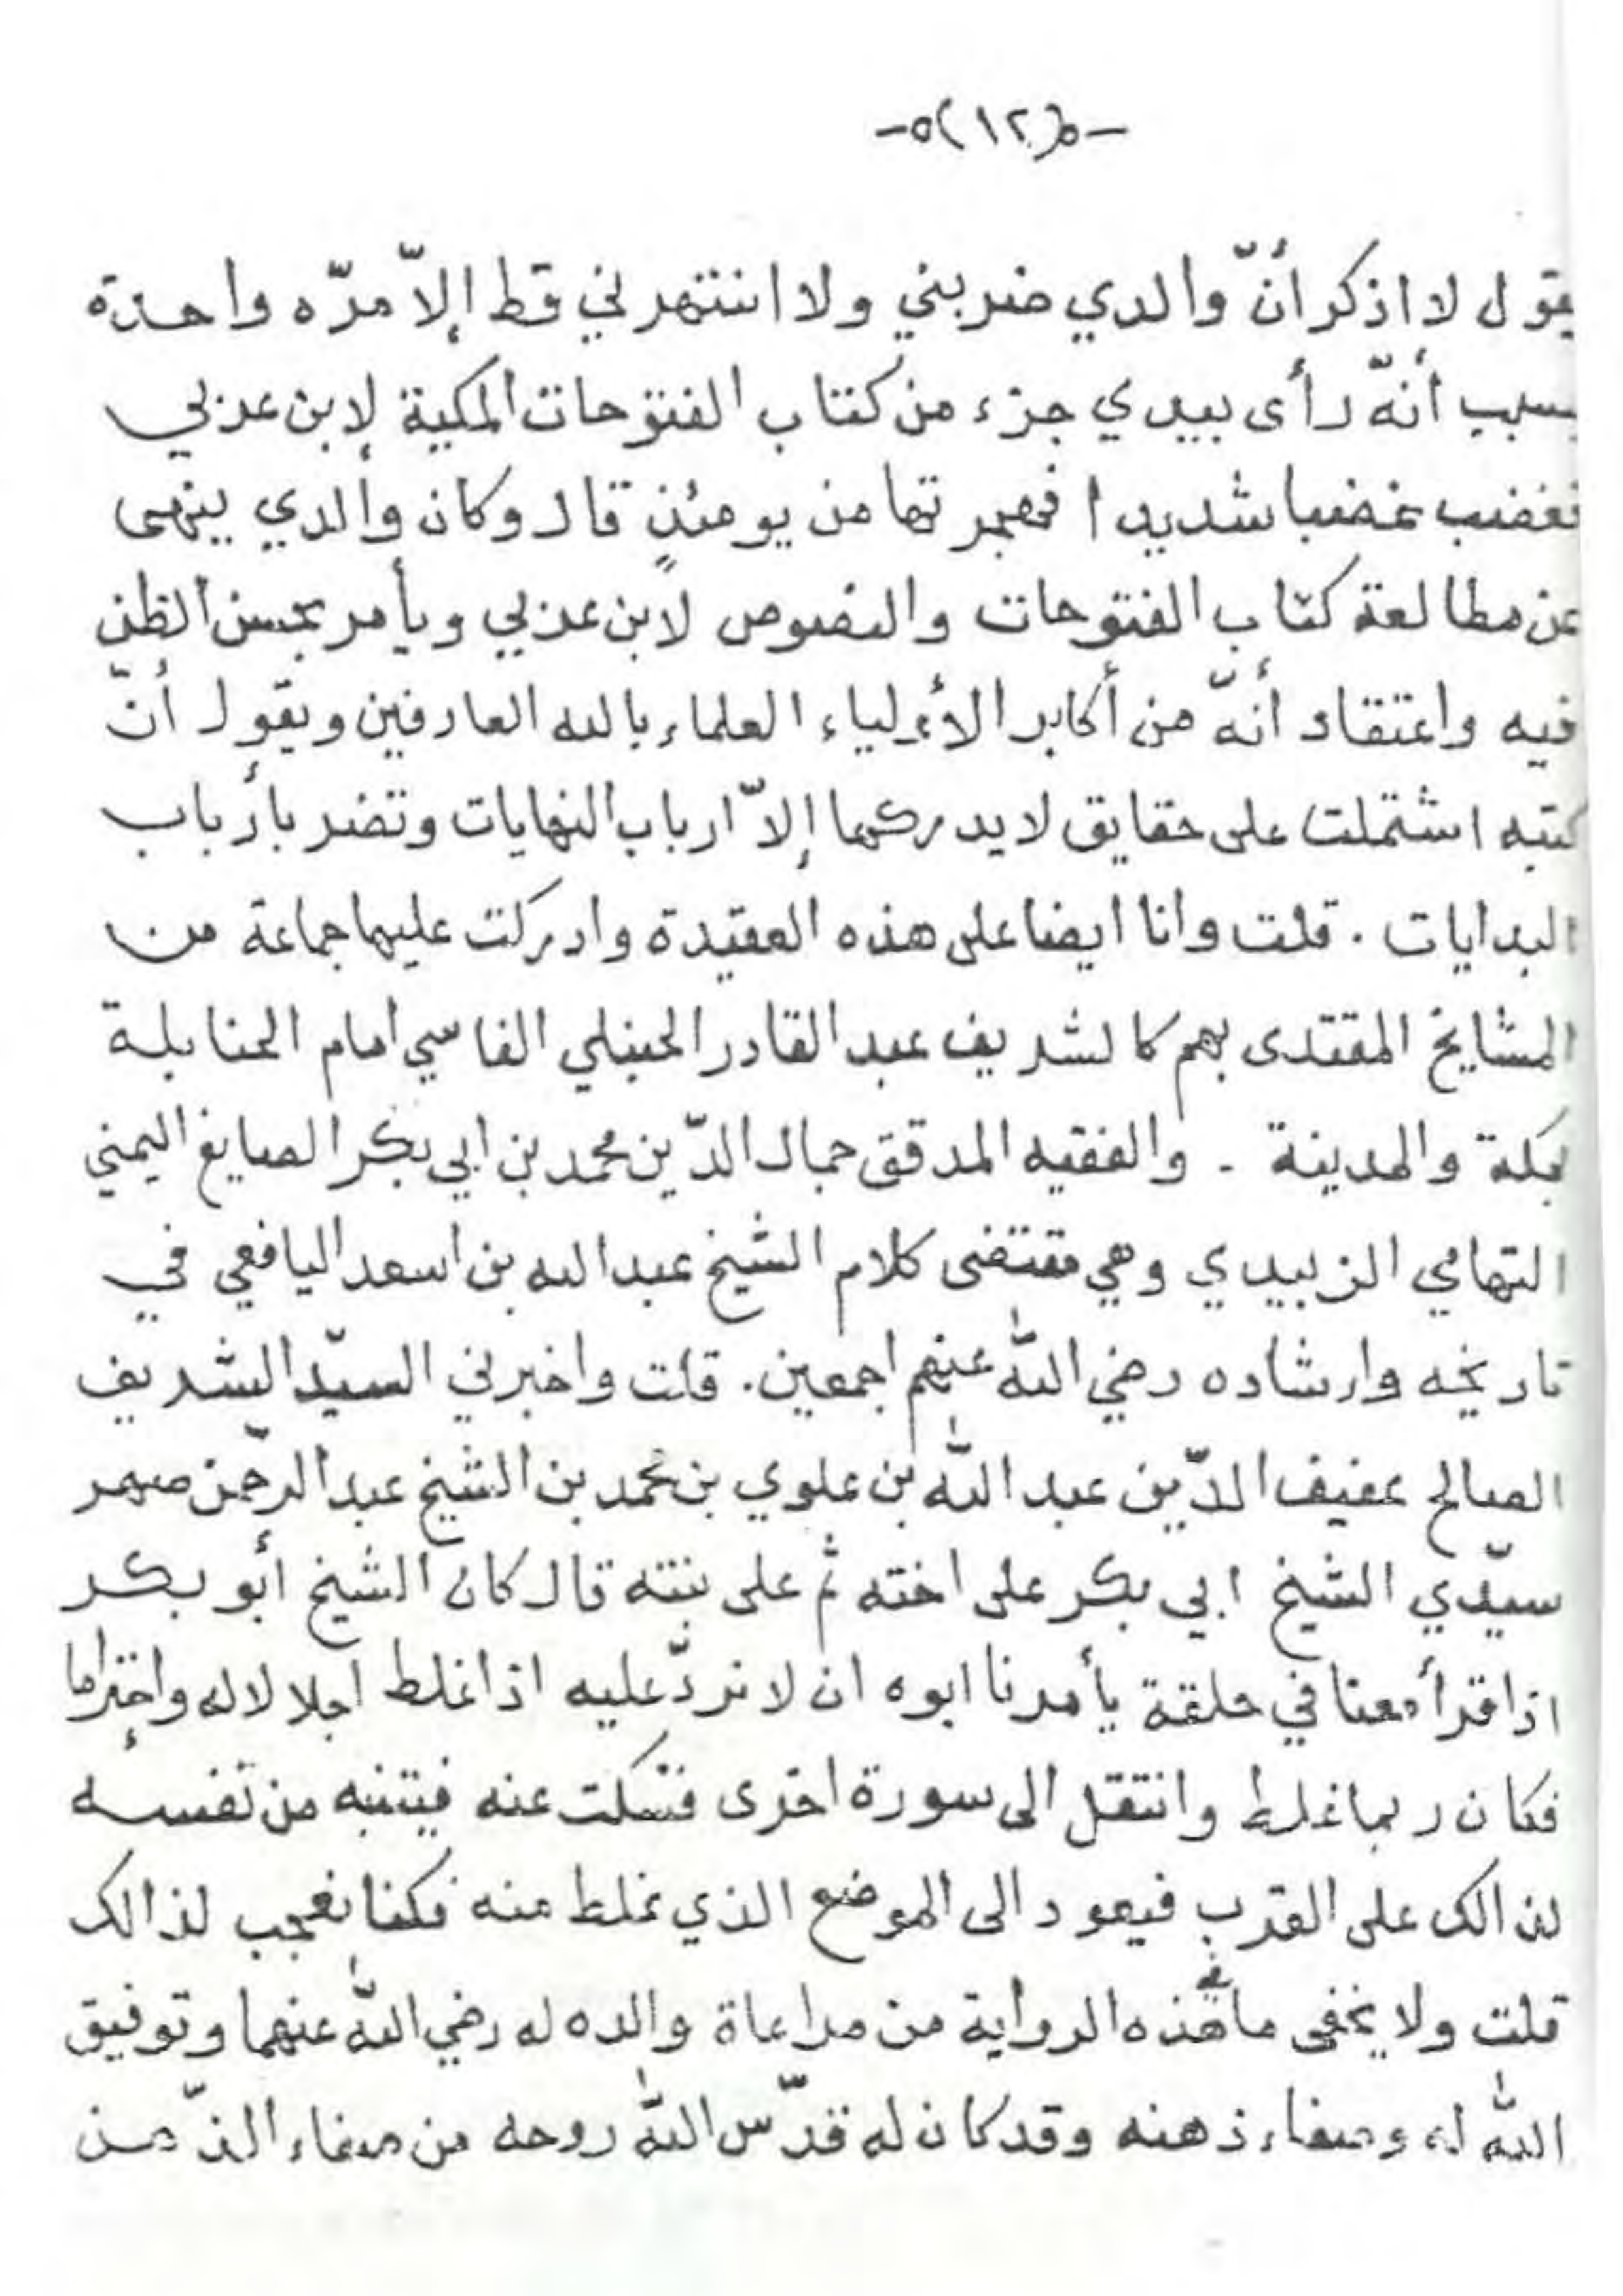 -٥(١٢)٥-
يقول لا اذكر أنّ والدي ضربني ولا انتهرني قط إلاّ مرّه واحدة
بسبب أنّه رأى بيدي جزء من كتاب الفتوحات المكية لإبن عربي
فغضب غضبا شديدا فهجرتها من يومئذٍ قال وكان والدي ينهى
عن مطالعة كتاب الفتوحات والفصوص لابن عربي ويأمر بحسن الظن
فيه واعتقاد أنّه من أكابر الأولياء العلماء بالله العارفين ويقول أنّ
كتبه اشتملت على حقايق لا يدركها إلاّ ارباب النهايات وتضر بأرباب
البدايات . قلت وانا ايضا على هذه العقيدة وادركت عليها جماعة من
المشايخ المقتدى بهم كالشريف عبد القادر الحنبلي الفاسي امام الحنابلة
بمكة والمدينة - والفقيه المدقق جمال الدّين محمد بن ابي بكر الصايغ اليمني
التهامي الزبيدي وهي مقتضى كلام الشيخ عبد الله بن اسعد اليافعي في
تاريخه وارشاده رضي الله عنهم اجمعين . قلت واخبرني السيّد الشريف
الصالح عفيف الدّين عبد الله بن علوي بن محمد بن الشيخ عبد الرّحمن صهر
سيّدي الشيخ ابي بكر على اخته ثم على بنته قال كان الشيخ أبو بكر
اذا قرأ معنا في حلقة يأمرنا ابوه ان لا نردّ عليه اذا غلط اجلالا له واحتراما
فكان ربما غلط وانتقل الى سورة اخرى فنسكت عنه فيتنبه من نفسه
لذالك على القرب فيعود الى الموضع الذي غلط منه فكنا نعجب لذالك
قلت ولا يخفى ما في هذه الرواية من مراعاة والده له رضي الله عنهما وتوفيق
الله له وصفاء ذهنه وقد كان له قدّس الله روحه من صفاء الذّهن